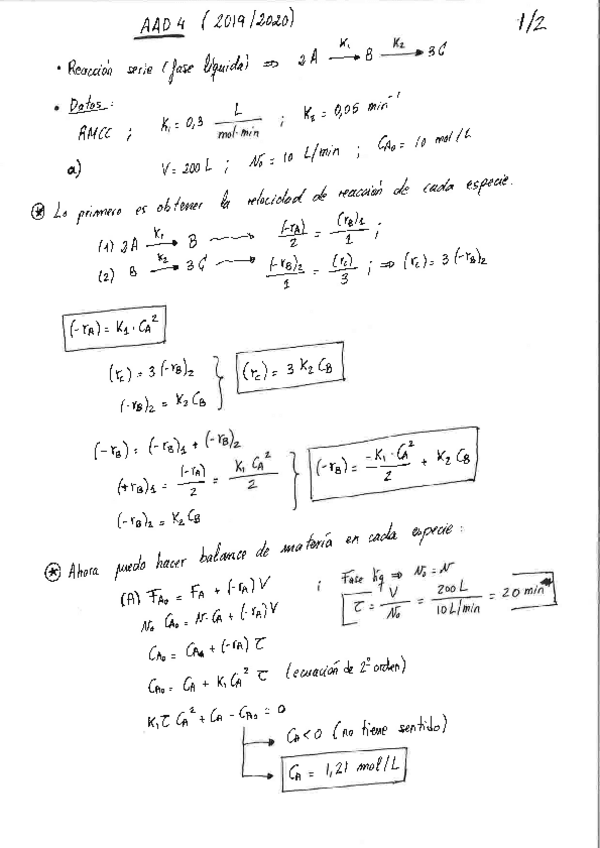 AAD 4 (2019/2020)
1/2
• Reacción serie (fase líquida) ⇒ 2A —K₁→ B —K₂→ 3C
• Datos:
RMCC ; K₁ = 0,3 L/mol·min ; K₂ = 0,05 min⁻¹
a) V = 200 L ; N₀ = 10 L/min ; CA₀ = 10 mol/L
⊛ Lo primero es obtener la velocidad de reacción de cada especie.
(1) 2A —K₁→ B ⇝ (-rA)/2 = (rB)₁/1 ;
(2) B —K₂→ 3C ⇝ (-rB)₂/1 = (rC)/3 ; ⇒ (rC) = 3(-rB)₂
(-rA) = K₁ · CA²
(rC) = 3(-rB)₂
(-rB)₂ = K₂ CB
(rC) = 3 K₂ CB
(-rB) = (-rB)₁ + (-rB)₂
(+rB)₁ = (-rA)/2 = K₁ CA²/2
(-rB)₂ = K₂ CB
(-rB) = -K₁ · CA²/2 + K₂ CB
⊛ Ahora puedo hacer balance de materia en cada especie:
(A) FA₀ = FA + (-rA) V ; Fase líq ⇒ N₀ = N
N₀ CA₀ = N·CA + (-rA) V
τ = V/N₀ = 200 L/10 L/min = 20 min
CA₀ = CA + (-rA) τ
CA₀ = CA + K₁ CA² τ (ecuación de 2º orden)
K₁ τ CA² + CA - CA₀ = 0
CA < 0 (no tiene sentido)
CA = 1,21 mol/L